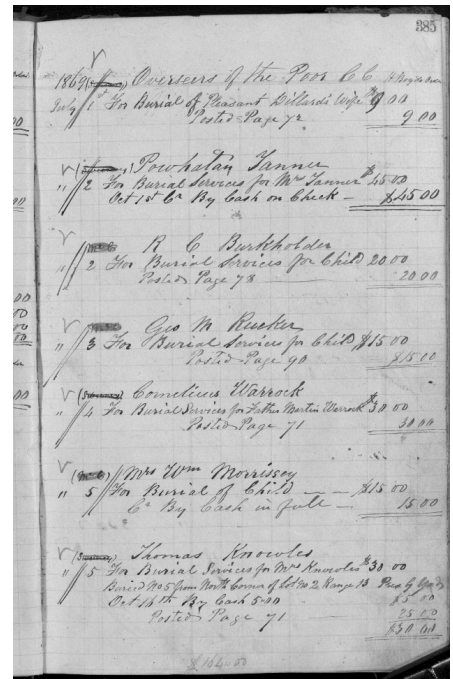 385
1869 Overseers of the Poor C C
July 1st For Burial of Pleasant Dillards Wife $9 00
Posted Page 72 9 00
Powhatan Tanner
" 2 For Burial Services for Mrs Tanner $45 00
Oct 1st Cr By Cash on Check — $45 00
R C Burkholder
" 2 For Burial Services for Child 20 00
Posted Page 78 20 00
Geo M Rucker
" 3 For Burial Services for Child $15 00
Posted Page 90 $15 00
Cornelius Warrock
" 4 For Burial Services for Father Martin Warrock $30 00
Posted Page 71 30 00
Mrs Wm Morrissey
" 5 For Burial of Child — $15 00
Cr By Cash in full — 15 00
Thomas Knowles
" 5 For Burial Services for Mrs Knowles $30 00
Buried No 5 from North Corner of Lot No 2 Range 13
Oct 16th By Cash 5 00 $5 00
Posted Page 71 25 00
$30 00
$164 00